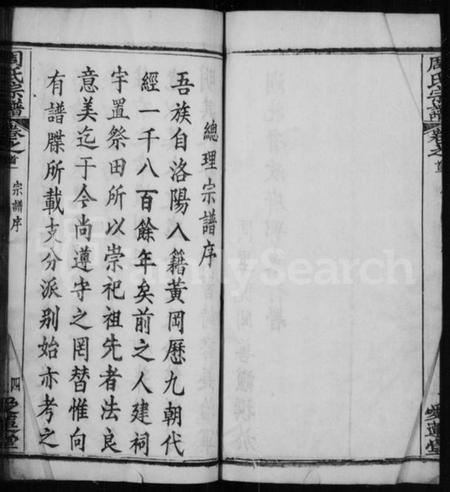 周氏宗譜
卷之首
愛蓮堂
總理宗譜序
吾族自洛陽入籍黃岡歷九朝代
經一千八百餘年矣前之人建祠
宇置祭田所以崇祀祖先者法良
意美迄于今尚遵守之罔替惟向
有譜牒所載支分派別始亦考之
周氏宗譜
卷之首
宗譜序
四
愛蓮堂
FamilySearch